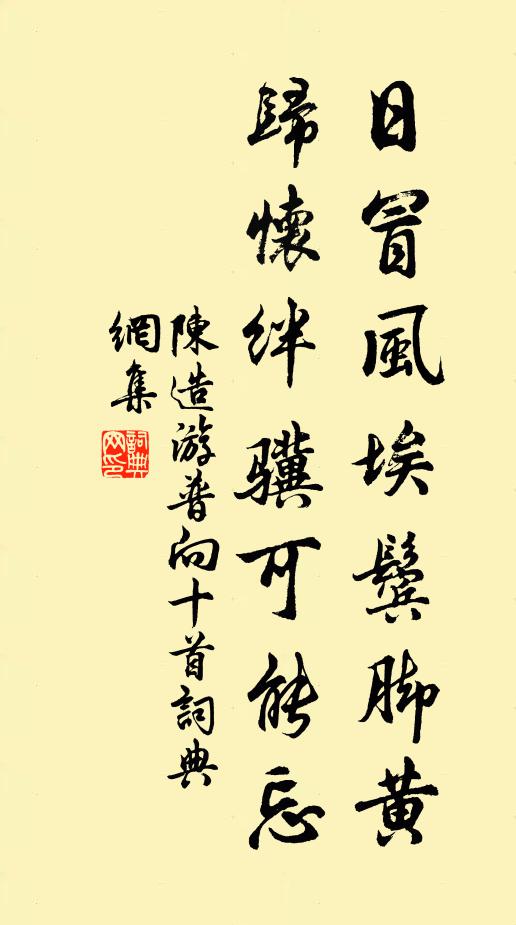 日冒風埃鬓脚黄
歸懷絆驥可能忘
陳造游普向十首詞典
網集
詞典
网印